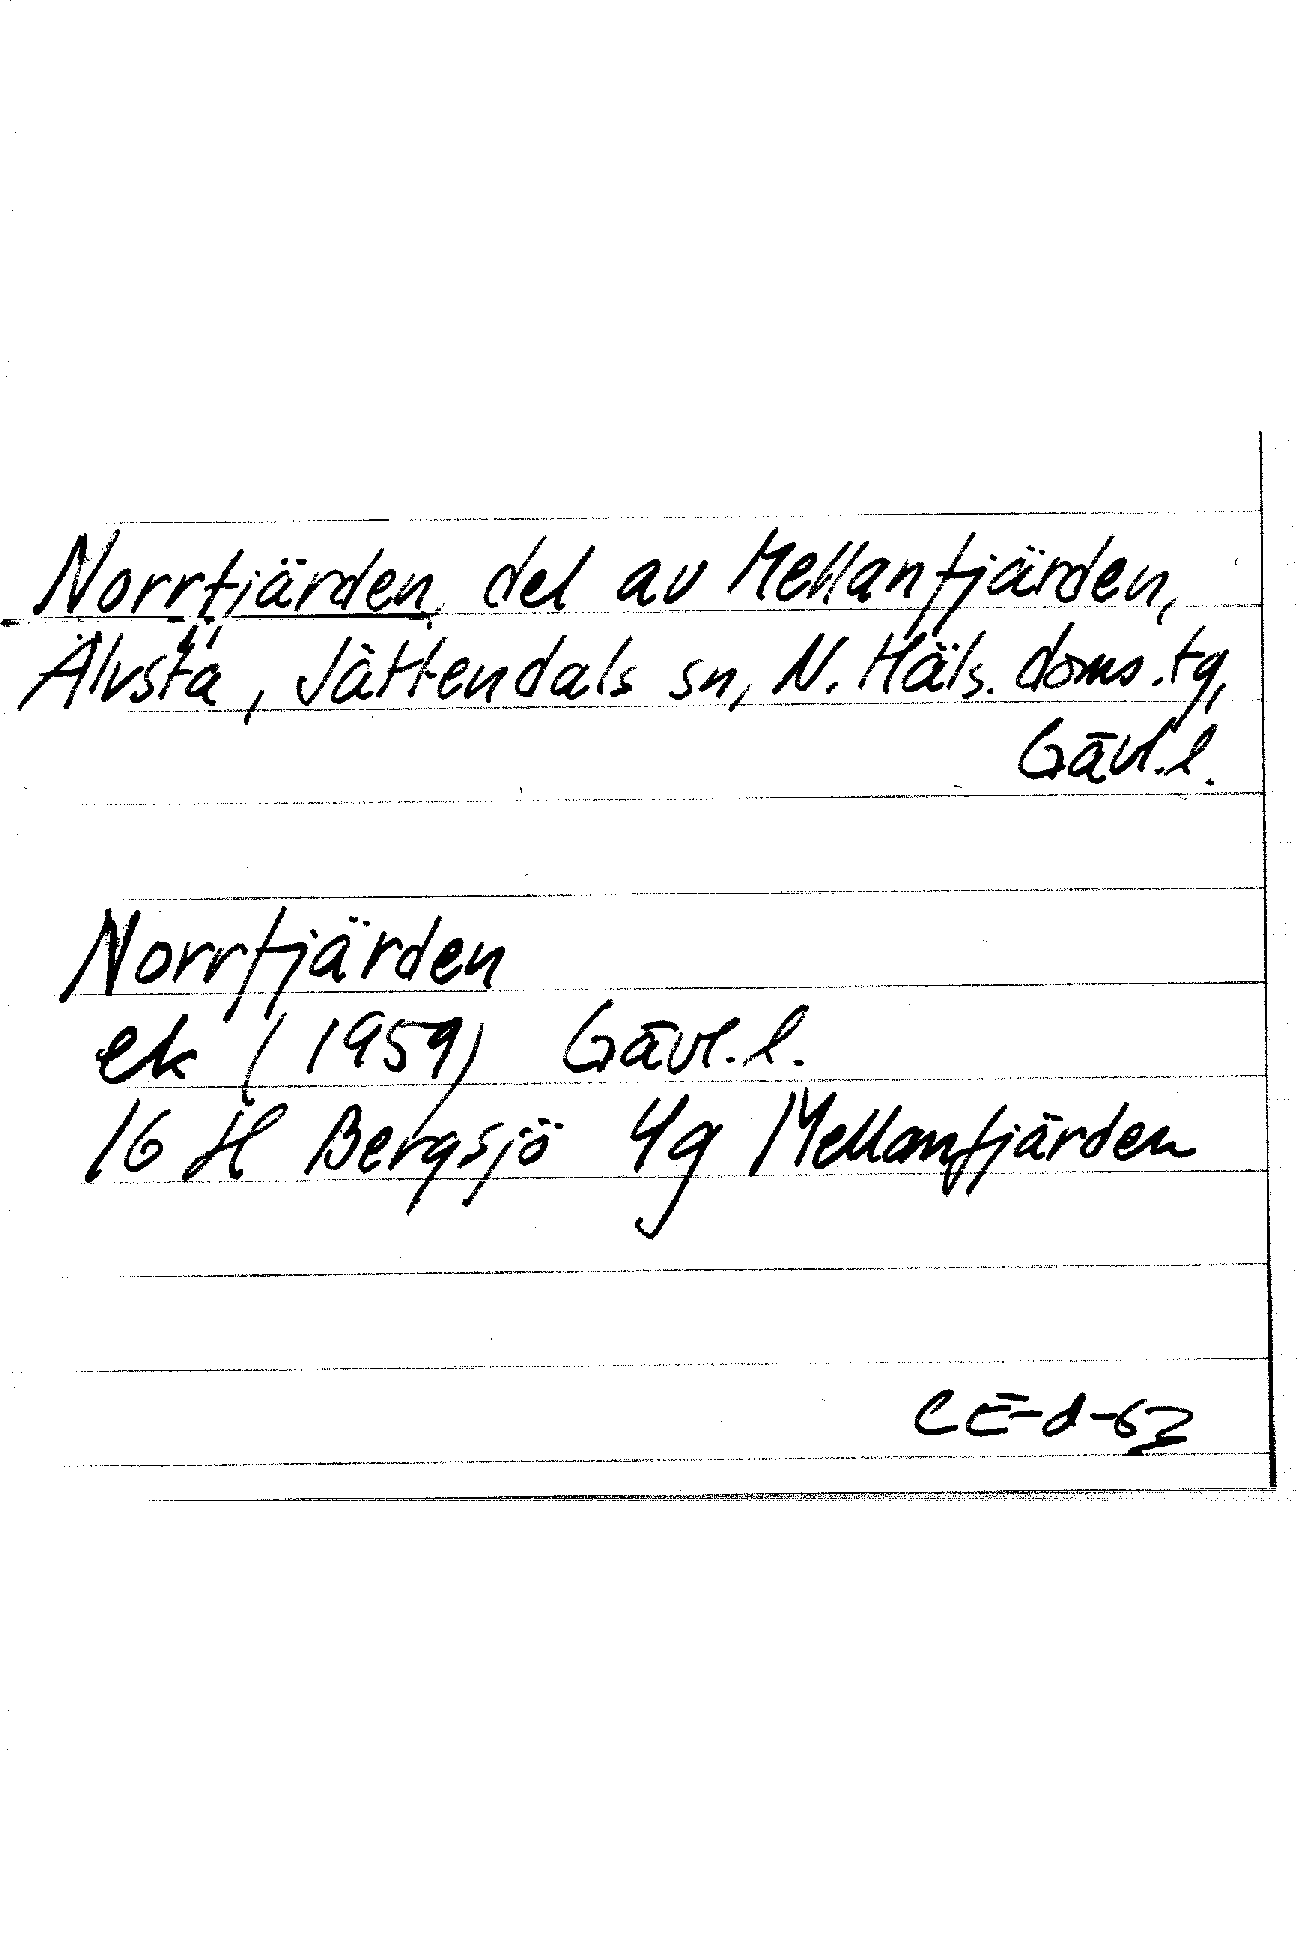 Norrfjärden, del av Mellanfjärden,
Älvsta, Jättendals sn, N. Häls. doms.tg,
Gävl.l.
Norrfjärden
ek (1959) Gävl.l.
16 H Bergsjö 4g Mellanfjärden
CE-d-62